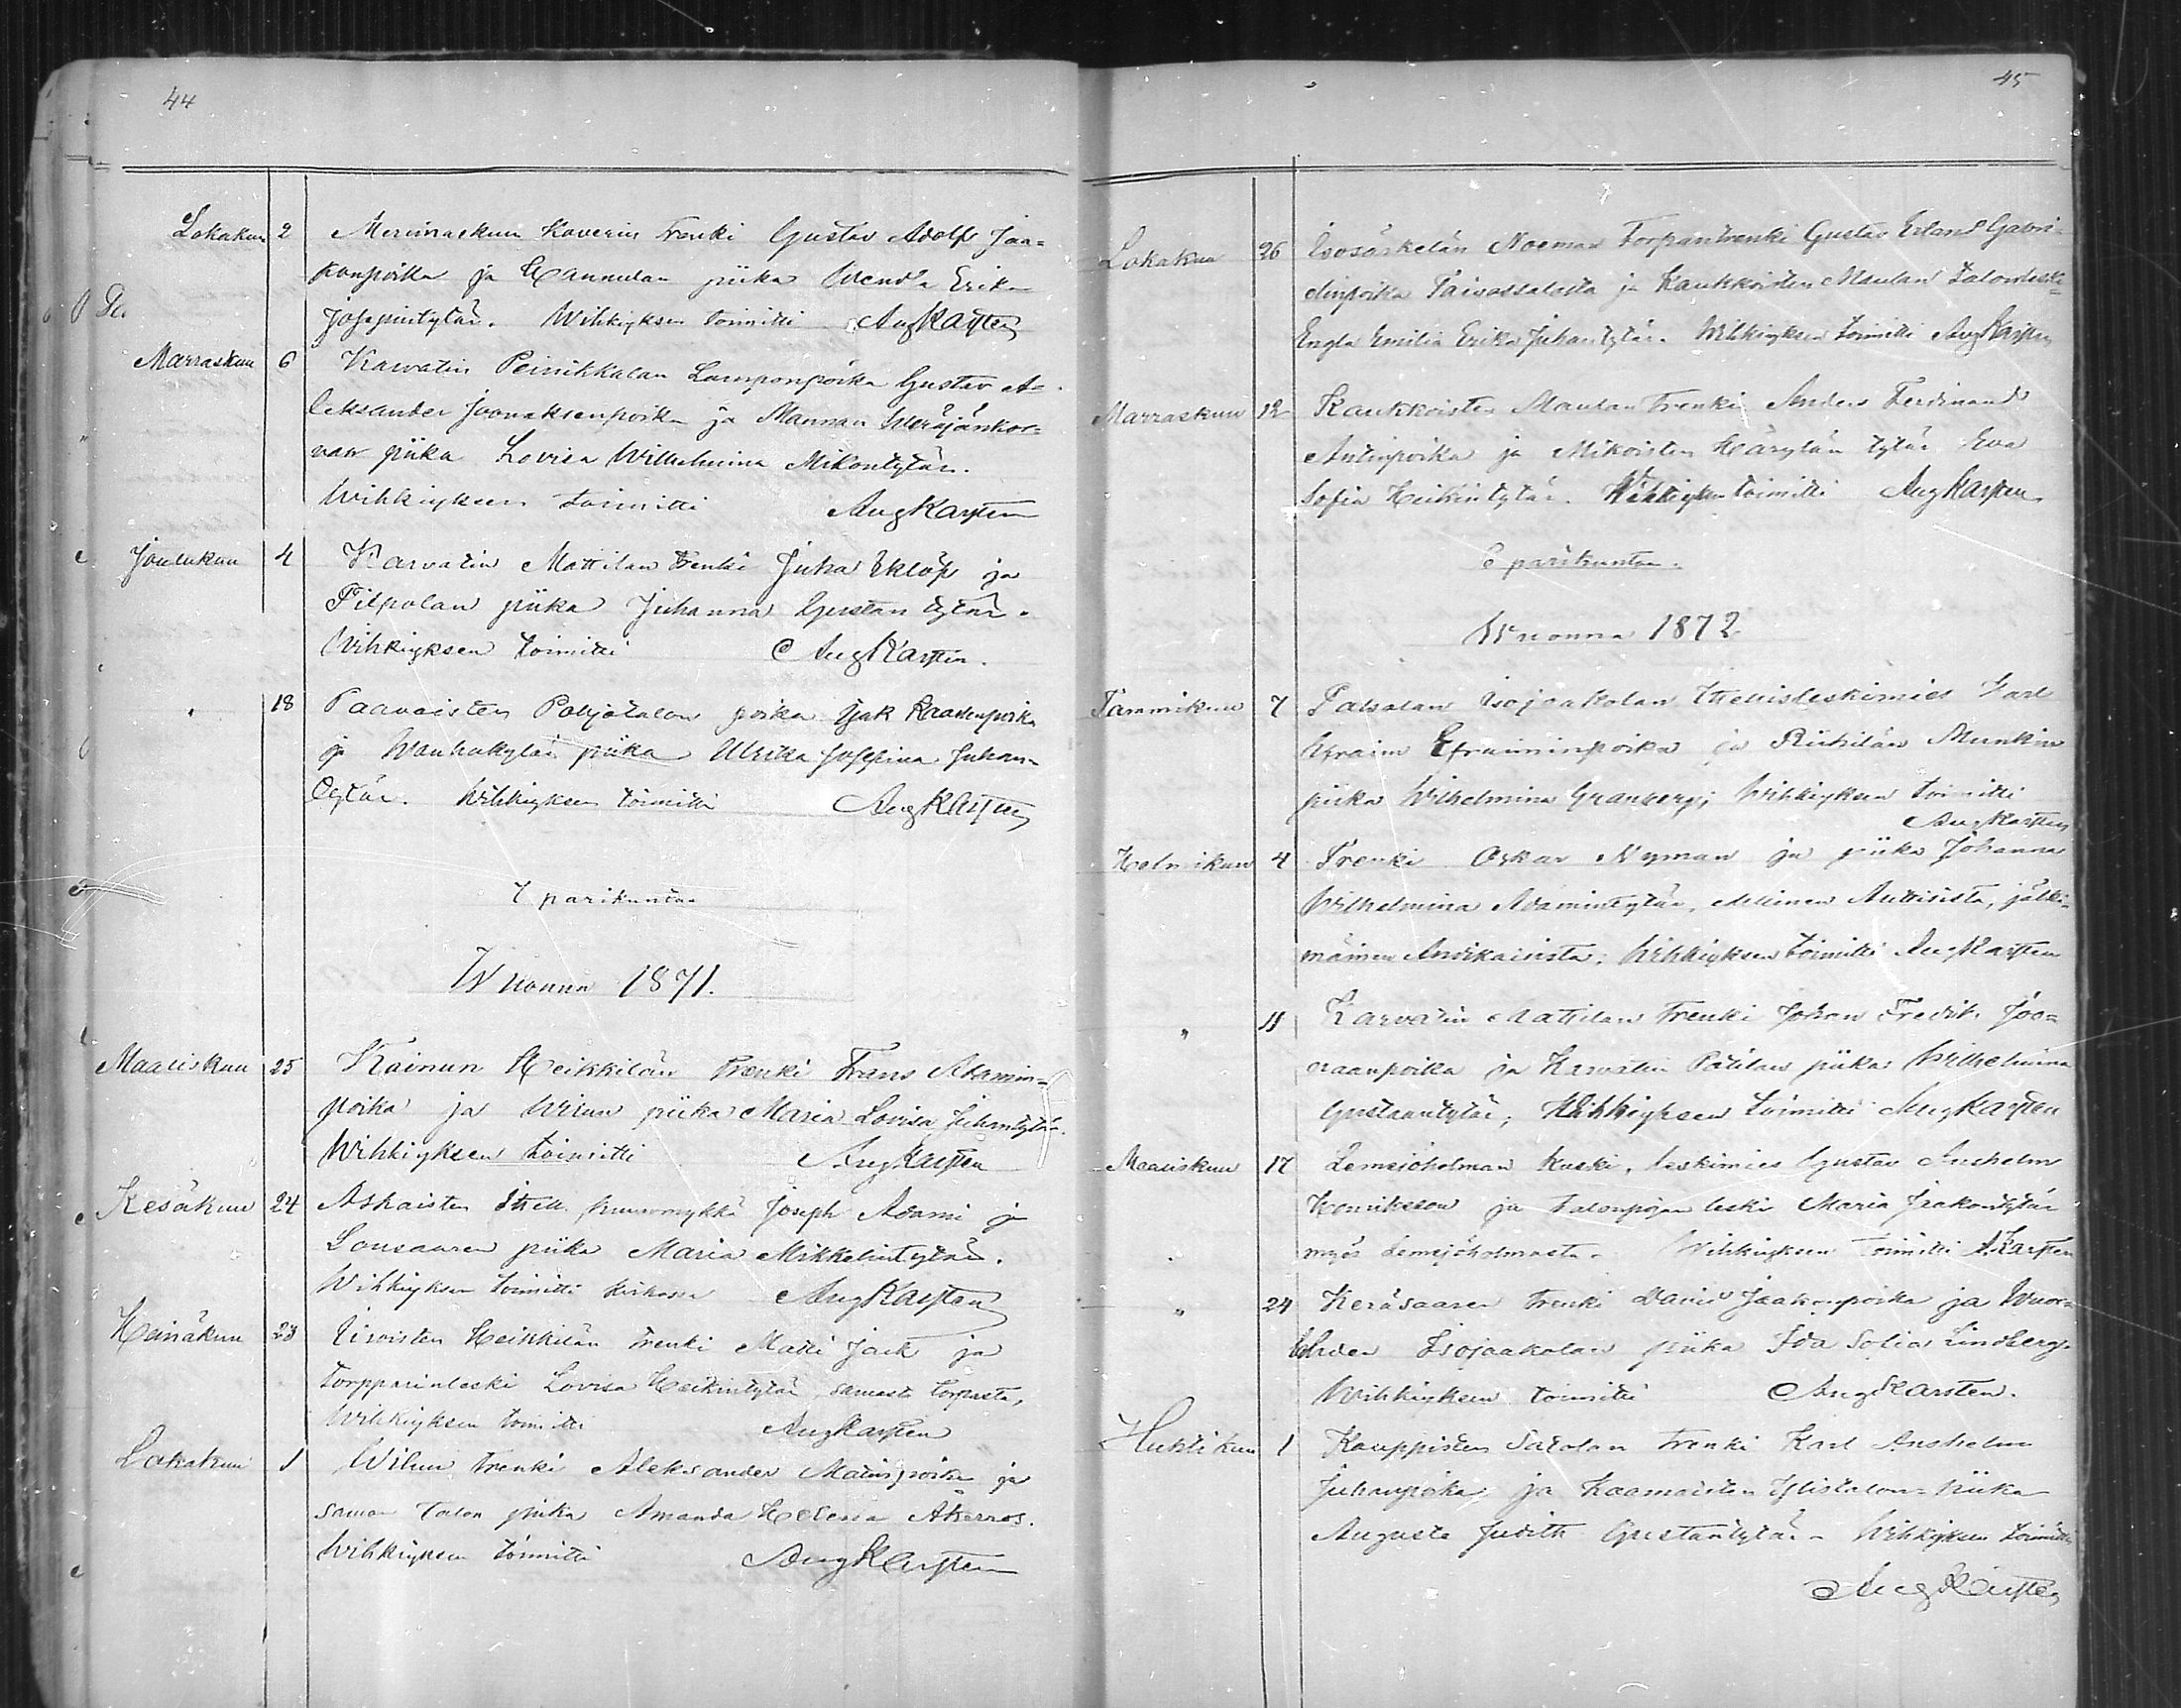 44
Lokakuu 2 Merimaskuu Koverin trenki Gustav Adolf Jaa=
konpoika ja Hannulan piika Wenda Erika
Josefintytär. Wihkiyksen toimitti AugKarsten
Marraskuu 6 Karvatin Peinikkalan Lamponpoika Gustav A=
leksander Joonaksenpoika ja Mannan
van piika Lovisa Wilhelmina Mikontytär.
Wihkiyksen toimitti AugKarsten
Joulukuu 4 Karvatin Mattilan trenki Juha Eklöf ja
Filpolan piika Juhanna Gustan tytär.
Wihkiyksen toimitti AugKarsten.
" 18 Paavaisten Pohjotalon poika Isak
ja Wanhakylän piika Ulrika Josefina Juhan=
tytär. Wihkiyksen toimitti AugKarsten
7 parikuntaa
Wuonna 1871.
Maaliskuu 25 Kainun Heikkilän trenki Frans Adamin=
poika ja Wilun piika Maria Lovisa Juhantytär.
Wihkiyksen toimitti AugKarsten
Kesäkuu 24 Askaisten Itell. kuuromykkä Joseph Adami ja
Lousaaren piika Maria Mikkelintytär.
Wihkiyksen toimitti kirkossa AugKarsten
Heinäkuu 23 Heikkilän trenki Matti Jack ja
torpparinleski Lovisa Heikintytär samast torpasta,
Wihkiyksen toimitti AugKarsten
Lokakuu 1 Wilun trenki Aleksander Matinpoika ja
saman talon piika Amanda Helena Åkerros.
Wihkiyksen toimitti AugKarsten
45
Lokakuu 26 Isosärkelän Noeman Torpantrenki Gustav Erland Gabri=
elinpoika Taivassalosta ja Kaukkoisten Maulan talonleski
Engla Emilia Erika Juhantytär. Wihkiyksen toimitti AugKarsten
Marraskuu 12 Kaukkoisten Maulan trenki Anders Ferdinand
Antinpoika ja Mikoisten Härylän tytär Eva
Sofia Heikintytär. Wihkiyksen toimitti AugKarsten
6 parikuntaa.
Wuonna 1872
Tammikuu 7 Palsalan Isojaakolan Itellisleskimies Karl
Efraim Efraiminpoika ja Riihilän Munkin
piika Wilhelmina Granberg; Wihkiyksen toimitti
AugKarsten
Helmikuu 4 Trenki Oskar Nyman ja piika Johanna
Wilhelmina Adamintytär, edellinen Auttisista, jälki=
mäinen Anvikaisista. Wihkiyksen toimitti AugKarsten
" 11 Karvatin Mattilan trenki Johan Fredrik Joo=
craanpoika ja Karvatin Pätilän piika Wilhelmina
Gustaantytär; Wihkiyksen toimitti AugKarsten
Maaliskuu 17 Lemsjöholman kuski, leskimies Gustav Anshelm
Henriksson ja talonpojan leski Maria Jaakontytär
myös Lemsjöholmasta. Wihkiyksen toimitti A.Karsten
" 24 Keräsaaren trenki David Jaakonpoika ja Wuor=
Isojaakolan piika Ida Sofia Lindberg.
Wihkiyksen toimitti AugKarsten.
Huhtikuu 1 Kauppisten Satolan trenki Karl Anshelm
Juhanpoika ja Kaamaisten Ylistalon piika
Augusta Judith Gustantytär. Wihkiyksen toimitti
AugKarsten